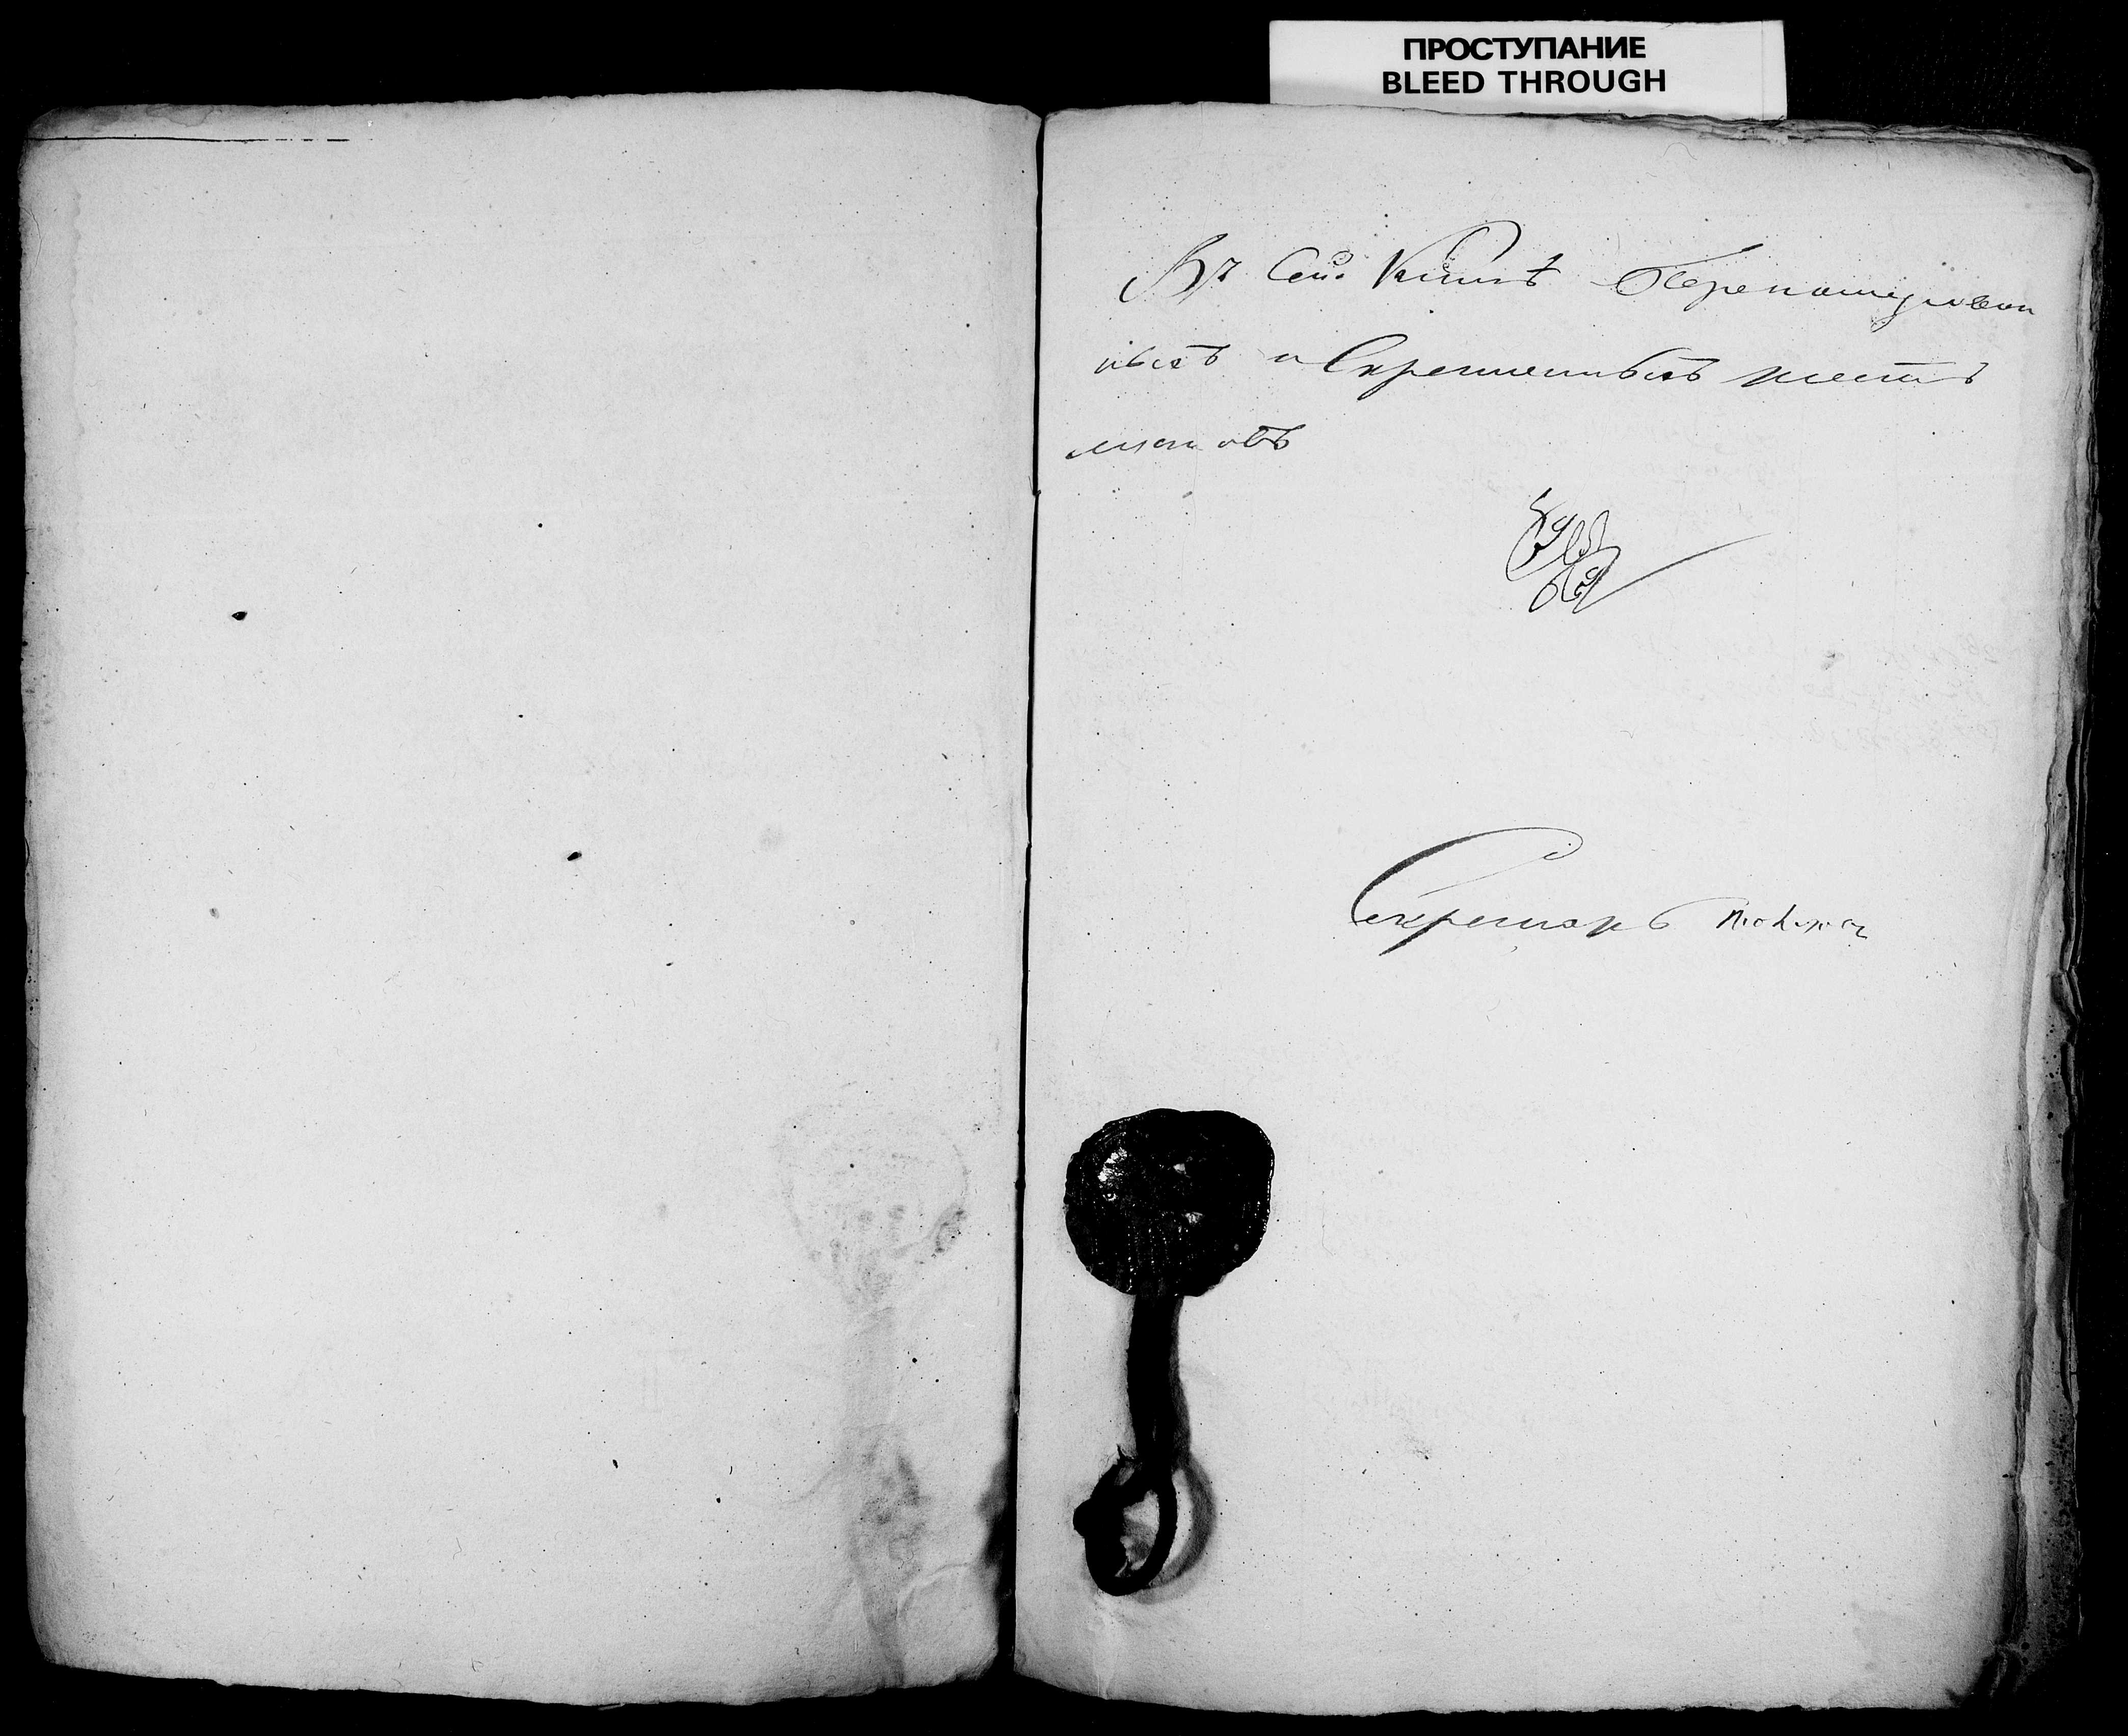 ПРОСТУПАНИЕ
BLEED THROUGH
Въ Сей Книгѣ Перенумерован
ныхъ и Скрепленныхъ шесть
листовъ
Секретарь